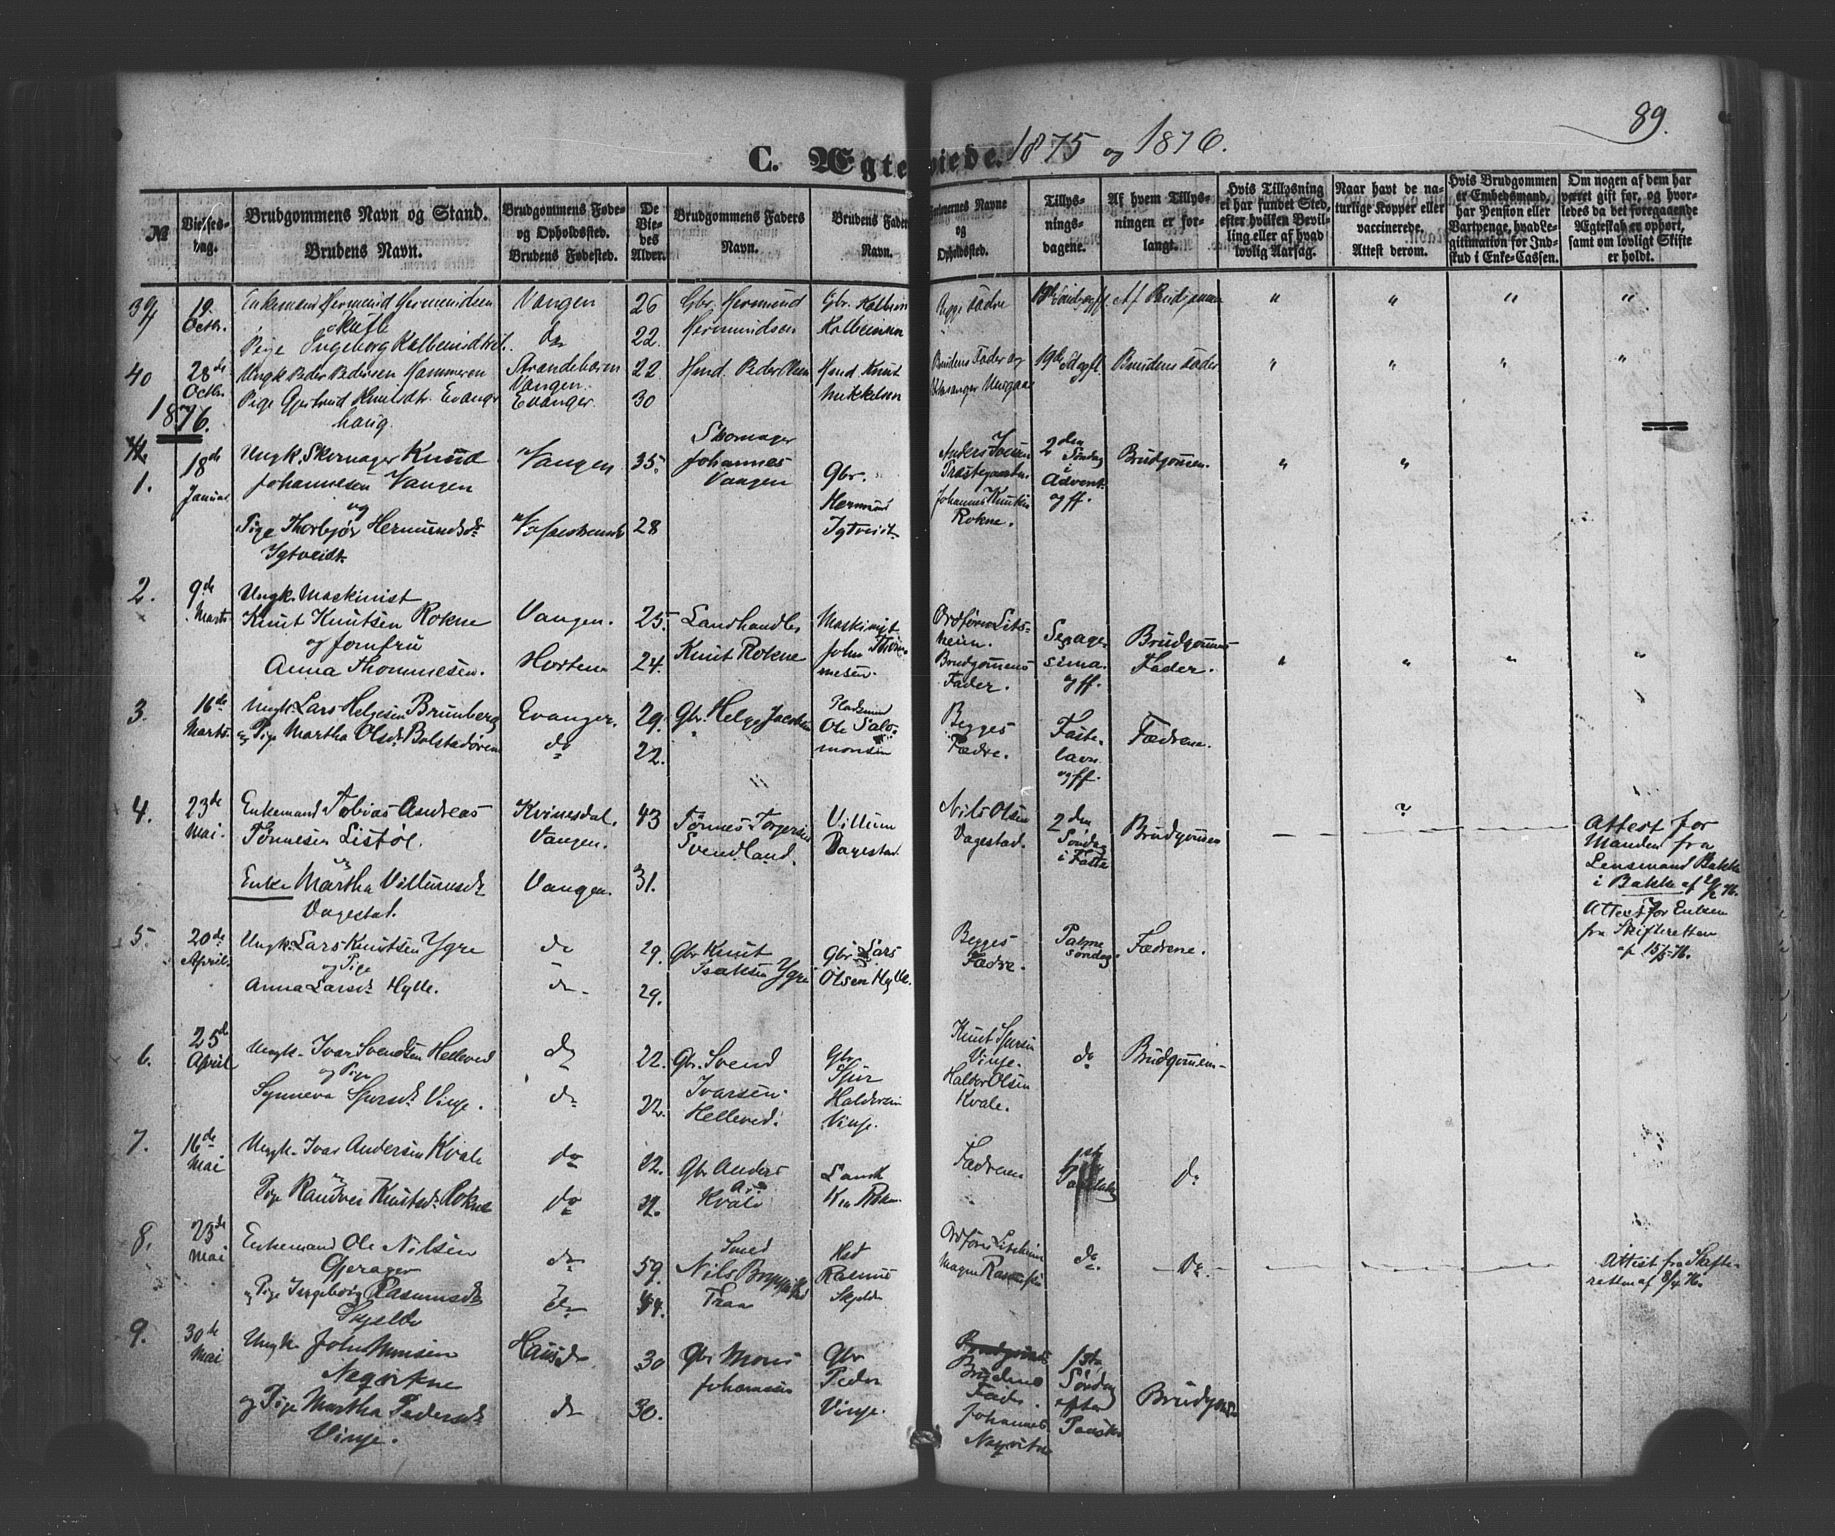 89.
C. Ægteviede. 1875 og 1876.
No
Vielsesdag.
Brudgommens Navn og Stand.
Brudens Navn.
Brudgommens Fødeog Opholdssted.
Brudens Fødested.
De Viedes Alder.
Brudgommens Faders Navn.
Brudens Faders Navn.
Forlovernes Navne og Opholdssted.
Tillysningsdagene.
Af hvem Tillysningen er forlangt.
Hvis Tillysning ei har fundet Sted, efter hvilken Bevilling eller af hvad lovlig Aarsag.
Naar havt de naturlige Kopper eller vaccinerede. Attest derom.
Hvis Brudgommen er Embedsmand, har Pension eller Vartpenge, hvad Legitimation for Indskud i Enke-Cassen.
Om nogen af dem har været gift før, og hvorledes da det foregaaende Ægteskab er ophørt, samt om lovligt Skifte er holdt.
39 19 Octbr. Enkemand Hermund Hermundsen Vangen 26 Gbr. Hermund Hermundsen
Pige Ingeborg do 22 Begges Fædre Af Brudgommen
40 28de Octbr. Ungk. Peder Pedersen Hammeren Vangen 22 Husmd. Peder Olsen Husmd. Knut Mikkelsen
Pige Gjertrud Knudsdtr. Evanger 30 Brudens Fader og Brudens Fader
1876.
1. 18de Januar Ungk. Skomager Knud Johannesen Vangen Vangen 35. Skomager Johannes Vangen Gbr. Hermund
og
Pige Thorbjør Hermundsd. 28
Anders Præstegaarden Johannes Knutsen Rokne. 2den Søndag i Advent og ff. Brudgommen.
2. 9de Marts Ungk. Maskinist
Knut Knutsen Rokne Vangen. 25. Landhandler Knut Rokne Maskinist John Thommesen.
og Jomfru
Anna Thommesen. Horten 24.
Ordfører Litsheim. Brudgommens Fader. Sexagesima. og ff. Brudgommens Fader.
3. 16de Marts Ungk. Lars Helgesen Brunborg Evanger. 29. Gbr. Helge Jacobsen Pladsmand Ole Salomonsen
og Pige Martha Olsd. Bolstadøren do 22.
Begges Fædre. Fastelavn og ff. Fædrene.
4. 23de Mai. Enkemand Tobias Andreas Tønnesen Listøl. Kvinesdal. Vangen. 43 Tønnes Torgersen Svendland. Villum Dagestad.
og
Enke Martha Villumsd. Dagestad. Vangen. 31.
Nils Olsen Dagestad. 2den Søndag i Faste Brudgommen
Attest for Manden fra Lensmand Bakke i Bakke af
Attest for Enken fra Skifteretten af 15/5-76.
5. 20de April Ungk. Lars Knutsen Ygre do 29. Gbr. Knut Isaksen Ygre Gbr. Lars Olsen Hylle.
og Pige
Anna Larsd. Hylle. do 29.
Begges Fædre. Palmesøndag. Fædrene.
6. 25d April Ungk. Ivar Svendsen Helleved do 22. Gbr. Svend Ivarsen Helleved. Gbr. Sjur Haldorsen Vinje.
og Pige
Synneva Sjursd. Vinje. do 22.
Knut Sjursen Vinje. Haldor Olsen Kvale. do Brudgommen
7. 16de Mai Ungk. Ivar Andersen Kvale do 22. Gbr. Anders Kvale
og
Pige Randvei Knutsd. Rokne do 22.
Fædrene do
8. 23de Mai Enkemand Ole Nilsen Gjerager do 59. Smed Nils Traa Rasmus
og Pige Ingeborg Rasmusd. do 44.
Ordfører Litsheim do. Do.
Attest fra Skifteretten af 8/4 76.
9. 30te Mai Ungk. John Monsen Nagvikne Haus 30 Gbr. Mons Johannesen Gbr. Peder Vinje.
og Pige Martha Pedersd. Vinje. do 30.
Brudens Fader. Johannes 1ste Søndag efter Paaske Brudgommen